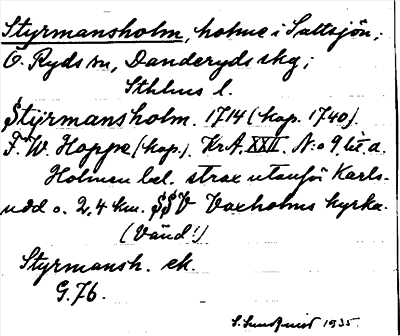 Styrmansholm, holme i Saltsjön;
Ö. Ryds sn, Danderyds skg;
Sthlms l.
Styrmansholm. 1714 (kop. 1740).
F. W. Hoppe (kop.). Kr.A. XXII. N:o 9 lit. a.
Holmen bel. strax utanför Karls-
udd o. 2,4 km. SSV Vaxholms kyrka.
(Vänd!)
Styrmansh. ek.
G. 76.
S. Sundquist 1935.